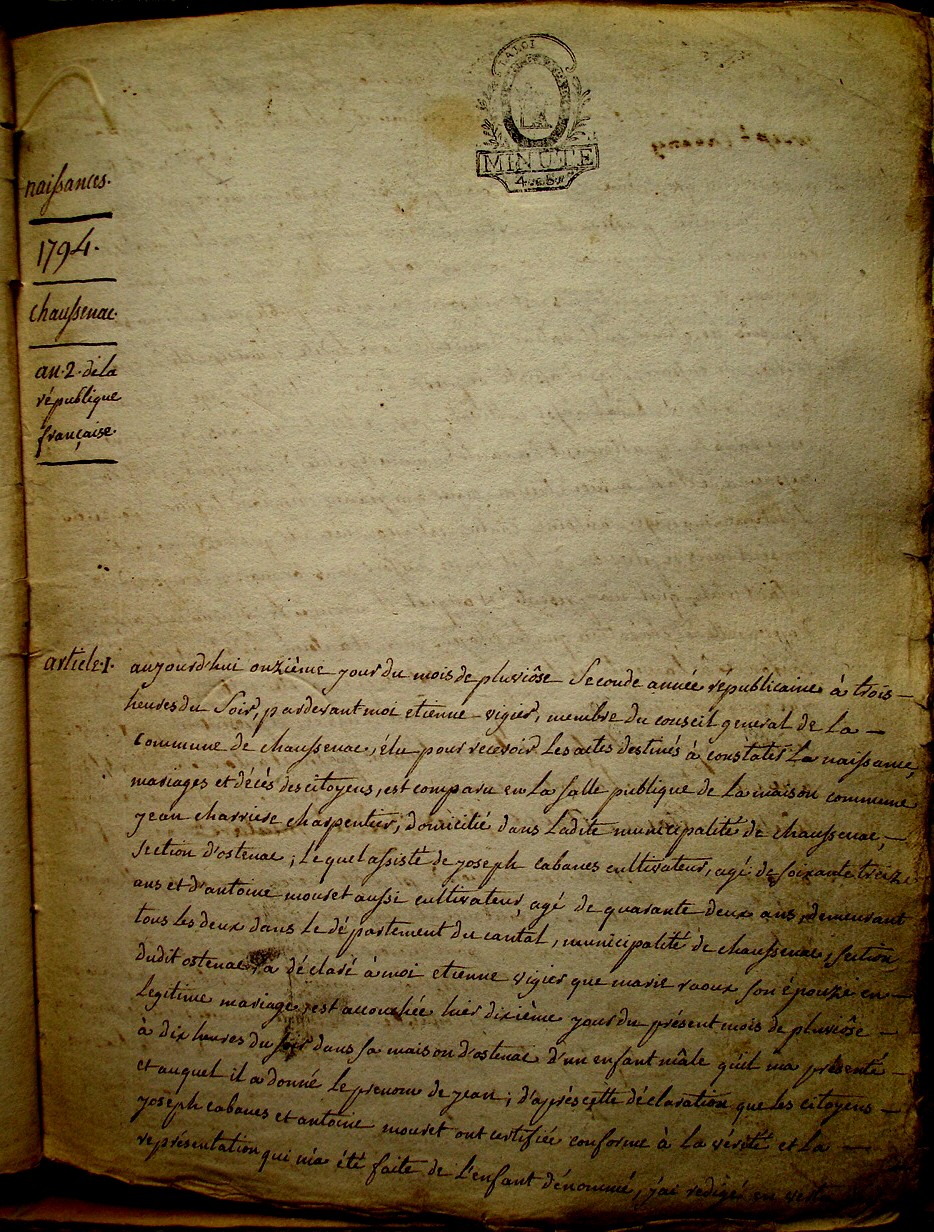 LA LOI
MINUTE
naissances.
1794.
chaussenac.
an.2. de la
république
française.
article.1. aujourd'hui onzième jour du mois de pluviôse Seconde année républicaine à trois —
heures du Soir, pardevant moi etienne vigier, membre du conseil general de la —
Commune de chaussenac, élu pour recevoir Les actes destinés à constater La naissance,
mariages et décès des citoyens, est comparu en La salle publique de La maison commune
jean charriere charpentier, domicilié dans Ladite municipalité de chaussenac, —
section d'ostenac; Lequel assisté de joseph cabanes cultivateur, agé de soixante treize
ans et d'antoine mouret aussi cultivateur, agé de quarante deux ans, demeurant
tous les deux dans le département du cantal, municipalité de chaussenac, section
dudit ostenac, a déclaré à moi etienne vigier que marie raoux son épouze en —
Legitime mariage, est accouchée hier dixième jour du présent mois de pluviôse —
à dix heures du soir dans sa maison d'ostenac d'un enfant mâle qu'il ma présenté —
et auquel il a donné le prenom de jean; d'après cette déclaration que les citoyens —
joseph cabanes et antoine mouret ont certifiée conforme à la vérité et la —
représentation qui m'a été faite de l'enfant dénommé, j'ai redigé en